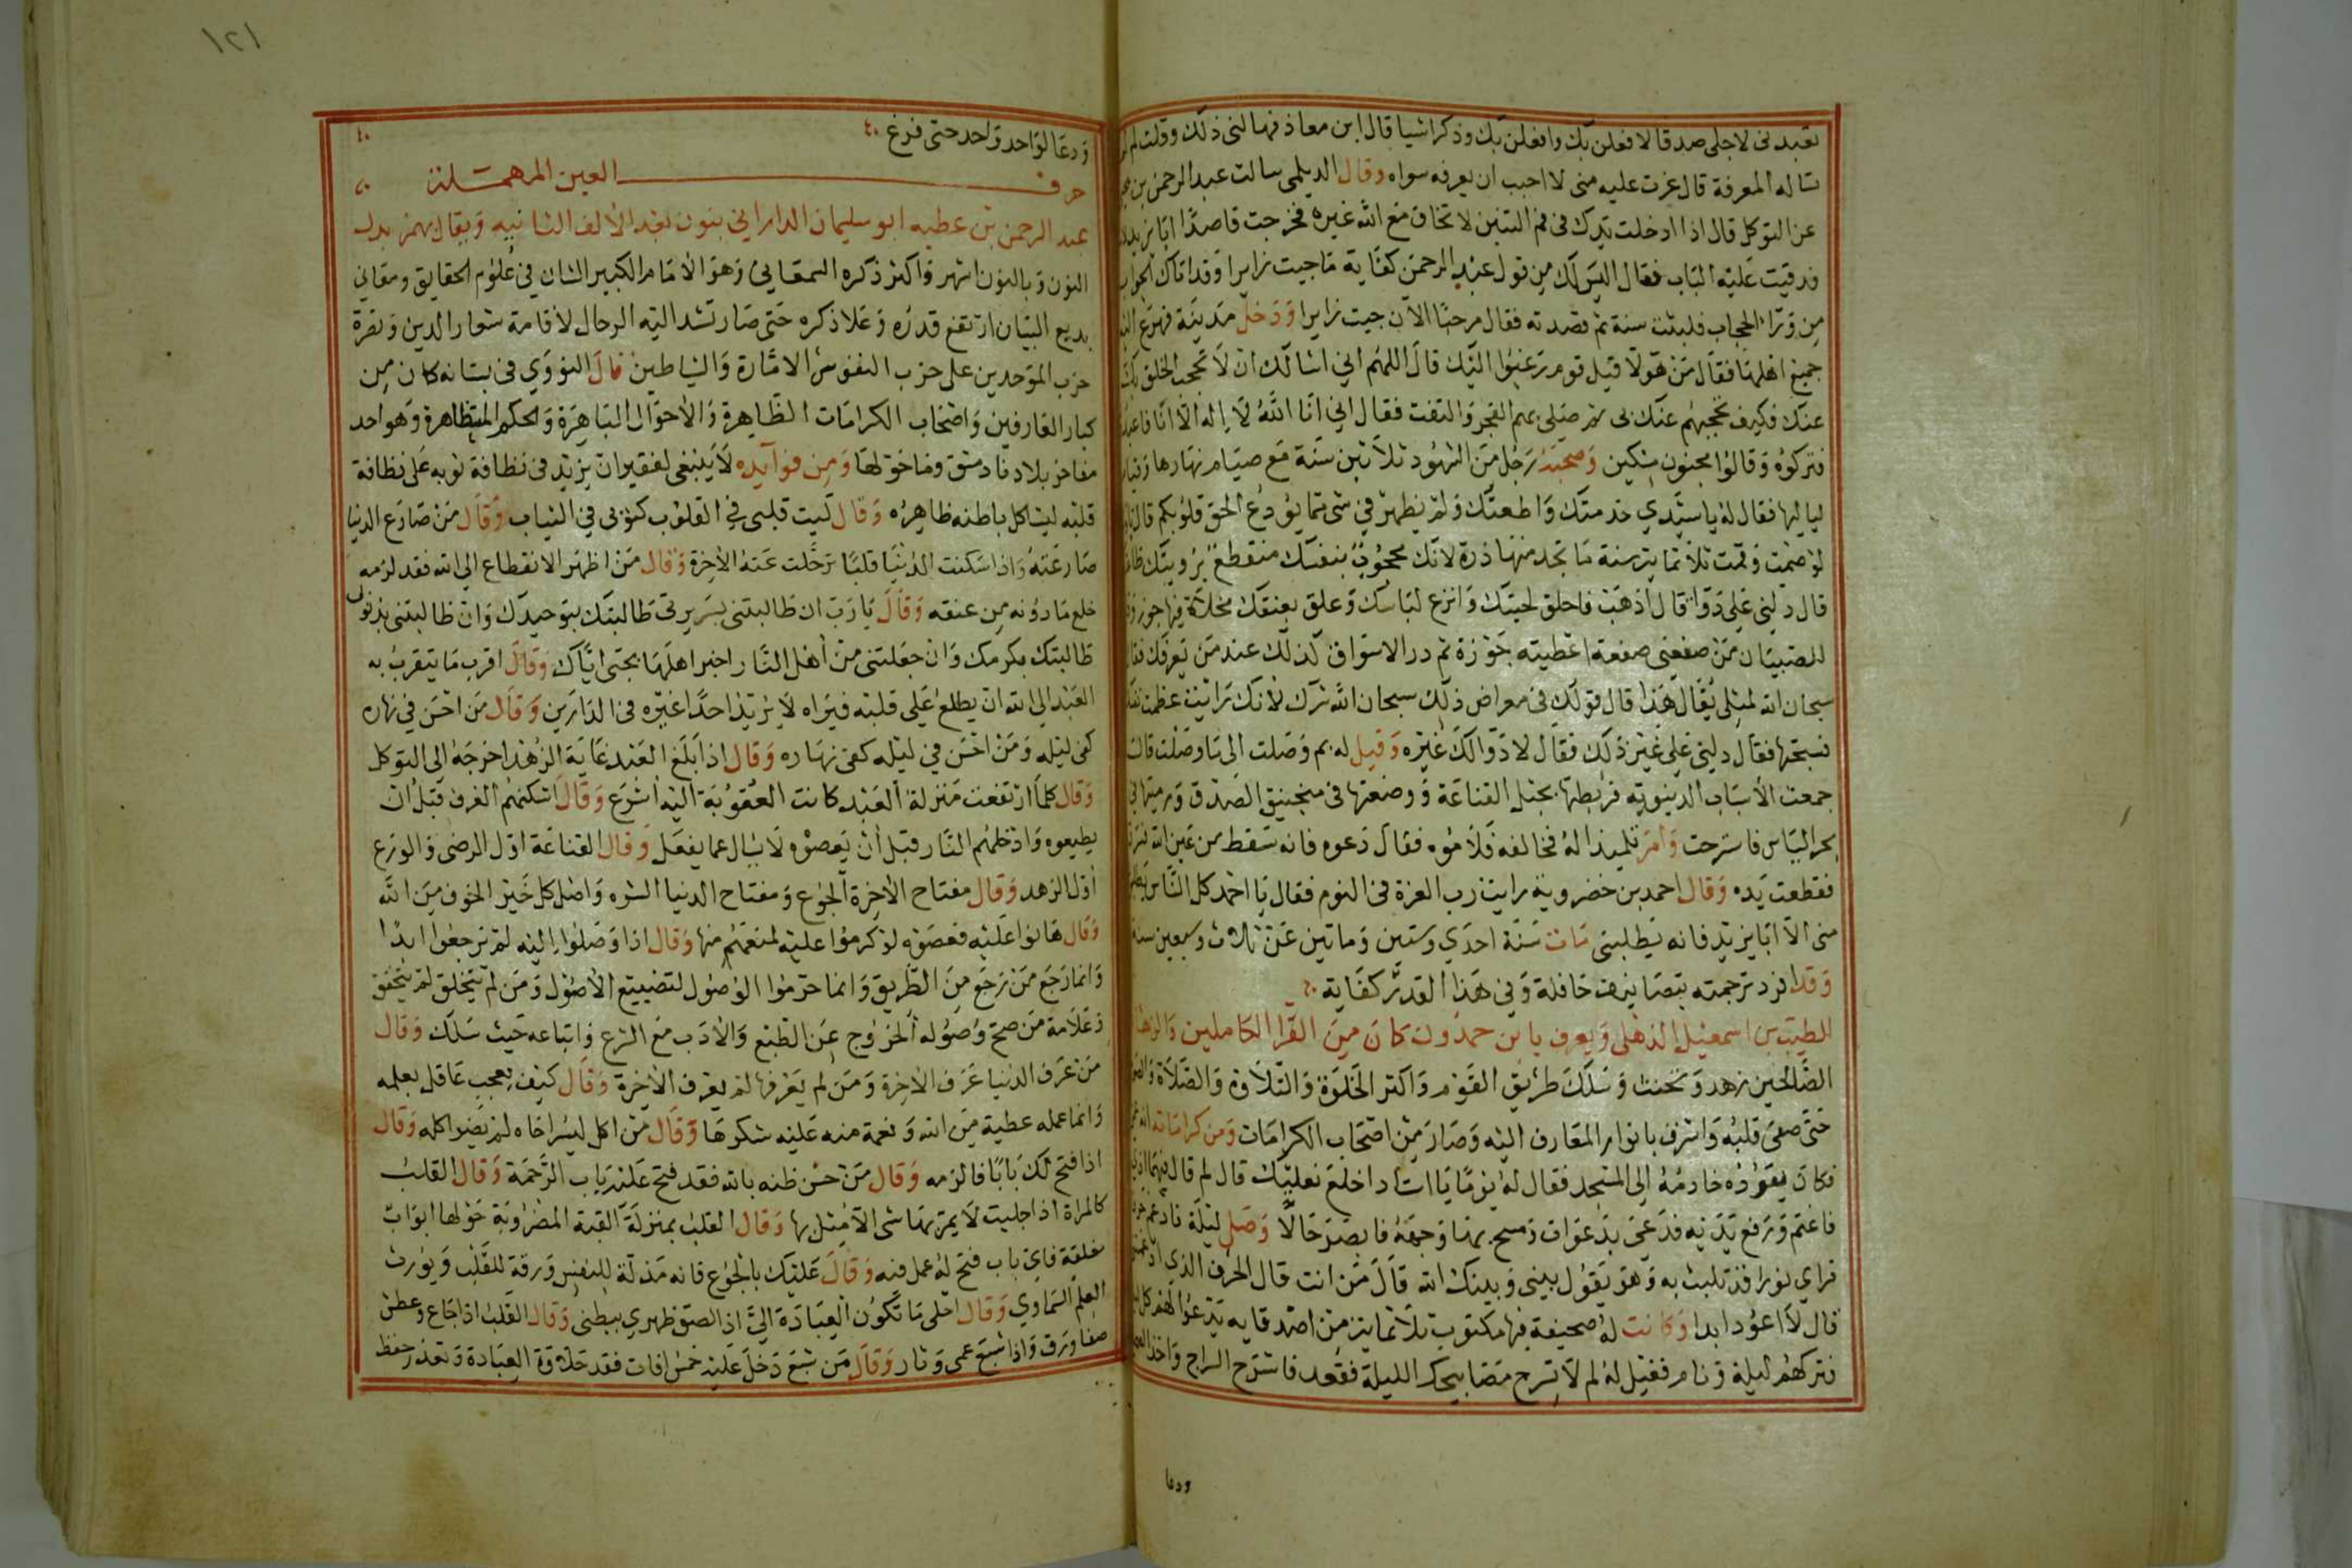 تعبدني لاجلي صدقا لافعلن بك وافعلن بك وذكر اشيا قال ابن معاذ فهالني ذلك وقلت لم
تساله المعرفة قال غرت عليه مني لا احب ان يعرفه سواه وقال الديلمي سالت عبد الرحمن بن
عن التوكل قال اذا ادخلت يدك في فم التنين لا تخاف مع الله غيره فخرجت قاصدًا ابا يزيد
فدقيت عليه الباب فقال اليس لك من قول عبد الرحمن كفاية ما جيت زايرا وقد اتاك الجواب
من ورا الحجاب فلبثت سنة ثم قصدته فقال مرحبًا الان جيت زايرا ودخل مدينة فهرع
جميع اهلها فقال من هولا قيل قوم رغبوا اليك قال اللهم اني اسالك ان لا تحجب الخلق بك
عنك فكيف تحجبهم عنك بي ثم صلى بهم الفجر والتفت فقال اني انا الله لا اله الا انا فاعبد
فتركوه وقالوا مجنون مسكين وصحبه رجل من الشهود ثلاثين سنة مع صيام نهارها وقيام
لياليها فقال له يا سيدي خدمتك واطعتك ولم يظهر في شي مما يودع الحق قلوبكم قال
لو صمت وقمت ثلاثماية سنة ما تجد منها ذرة لانك محجوب بنفسك منقطع برويتك
قال دلني على دوا قال اذهب فاحلق لحيتك وانزع لباسك وعلق بعنقك مخلاة فيها جوز
للصبيان من صفعني صفعة اعطيته جوزة ثم در الاسواق كذلك عند من يعرفك
سبحان الله لمثلي يقال هذا قال قولك في معراض ذلك سبحان الله شرك لانك رايت عظمت
فسبحتها فقال دلني على غير ذلك فقال لا دوا لك غيره وقيل له بم وصلت الى ما وصلت قال
جمعت الاسباب الدنيوية فربطتها بحبل القناعة ووضعتها في منجنيق الصدق ورميتها في
بحر الياس فاسترحت وامر تلميذا له فخالفه فلاموه فقال دعوه فانه سقط من عين الله
فقطعت يده وقال احمد بن خضروية رايت رب العزة في النوم فقال يا احمد كل الناس
مني الا ابا يزيد فانه يطلبني مات سنة احدي وستين وماتين عن ثلاث وسبعين سنة
وقد افرد ترجمته بتصانيف حافلة وفي هذا القدر كفاية
الطيب بن اسمعيل الذهلي ويعرف بابن حمدون كان من القرا الكاملين
الصالحين زهد وتحنث وسلك طريق القوم واكثر الخلوة والتلاوة والصلاة
حتى صفى قلبه واشرف بانوار المعارف اليه وصار من اصحاب الكرامات ومن كراماته انه
فكان يقوده خادمه الى المسجد فقال له يومًا يا استاد اخلع نعليك قال لم قال
فاغتم ورفع يديه فدعى بدعوات ومسح بهما وجهه فابصر حالًا وصلى ليلة
فراي نورا قد تلبث به وهو يقول بيني وبينك الله قال من انت قال الحرف الذي
قال لا اعود ابدا وكانت له صحيفة فيها مكتوب ثلاثماية من اصدقايه يدعو لهم كل
فتركهم ليلة ونام فقيل له لم لا تسرج مصابيحك الليلة فقعد فاسرج السراج واخذ
ودعا
١٢١
ودعا لواحد واحد حتى فرغ
حرف العين المهملة
عبد الرحمن بن عطيه ابو سليمان الداراني بنون بعد الالف الثانيه ويقال بهمز بدل
النون وبالنون اشهر واكثر ذكره السمعاني وهو الامام الكبير الشان في علوم الحقايق ومعاني
بديع البيان ارتفع قدره وعلا ذكره حتى صار تشد اليه الرحال لاقامة شعار الدين ونصرة
حزب الموحدين على حزب النفوس الامارة والشياطين قال النووي في بستانه كان من
كبار العارفين واصحاب الكرامات الظاهرة والاحوال الباهرة والحكم المتظاهرة وهو احد
مفاخر بلادنا دمشق وما حولها ومن فوايده لا ينبغي لفقير ان يزيد في نظافة ثوبه على نظافة
قلبه ليشاكل باطنه ظاهره وقال ليت قلبي في القلوب كثوبي في الثياب وقال من صارع الدنيا
صارعته واذا سكنت الدنيا قلبًا ترحلت عنه الاخرة وقال من اظهر الانقطاع الى الله فقد لزمه
خلع ما دونه من عنقه وقال يا رب ان طالبتني بسريرتي طالبتك بتوحيدك وان طالبتني بذنوبي
طالبتك بكرمك وان جعلتني من اهل النار اخبر اهلها بحبي اياك وقال اقرب ما يتقرب به
العبد الى الله ان يطلع على قلبه فيراه لا يريد احدًا غيره في الدارين وقال من احسن في نهاره
كفى ليله ومن احسن في ليله كفى نهاره وقال اذا بلغ العبد غاية الزهد اخرجه الى التوكل
وقال كلما ارتفعت منزلة العبد كانت العقوبة اليه اسرع وقال اسكنهم الغرف قبل ان
يطيعوه وادخلهم النار قبل ان يعصوه لا يسال عما يفعل وقال القناعة اول الرضى والورع
اول الزهد وقال مفتاح الاخرة الجوع ومفتاح الدنيا الشره واصل كل خير الخوف من الله
وقال هانوا عليه فعصوه لو كرموا عليه لمنعهم منها وقال اذا وصلوا اليه لم يرجعوا ابدًا
وانما رجع من رجع من الطريق وانما حرموا الوصول لتضييع الاصول ومن لم يتخلق لم يتحقق
وعلامة من صح وصوله الخروج عن الطبع والادب مع الشرع واتباعه حيث سلك وقال
من عرف الدنيا عرف الاخرة ومن لم يعرفها لم يعرف الاخرة وقال كيف يعجب عاقل بعلمه
وانما عمله عطية من الله ونعمة منه عليه شكرها وقال من اكل ليسر اخاه لم يضره اكله وقال
اذا فتح لك بابًا فالزمه وقال من حسن ظنه بالله فقد فتح عليه باب الرحمة وقال القلب
كالمراة اذا جليت لا يمر بها شي الا مثل بها وقال القلب بمنزلة القبة المضروبة حولها ابواب
مغلقة فاي باب فتح له عمل فيه وقال عليك بالجوع فانه مذلة للنفس ورقة للقلب ويورث
العلم السماوي وقال احلى ما تكون العبادة الي اذا لصق ظهري ببطني وقال القلب اذا جاع وعطش
صفا ورق واذا شبع عمي وثار وقال من شبع دخل عليه خمس افات فقد حلاوة العبادة وتعذر حفظ